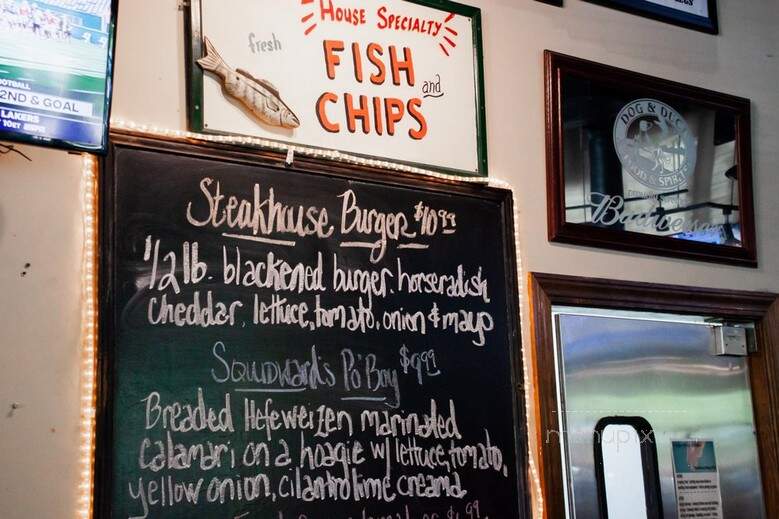 OOTBALL
2ND & GOAL
LAKERS
10ET ESPN
House Specialty
fresh
FISH
and
CHIPS
DOG & DUCK
FOOD & SPIRITS
Budweiser
Steakhouse Burger $10.99
1/2 lb. blackened burger, horseradish
cheddar, lettuce, tomato, onion & mayo
Squidward's Po'Boy $9.99
Breaded Hefeweizen marinated
calamari on a hoagie w/ lettuce, tomato,
yellow onion, cilantro lime creama
menupix